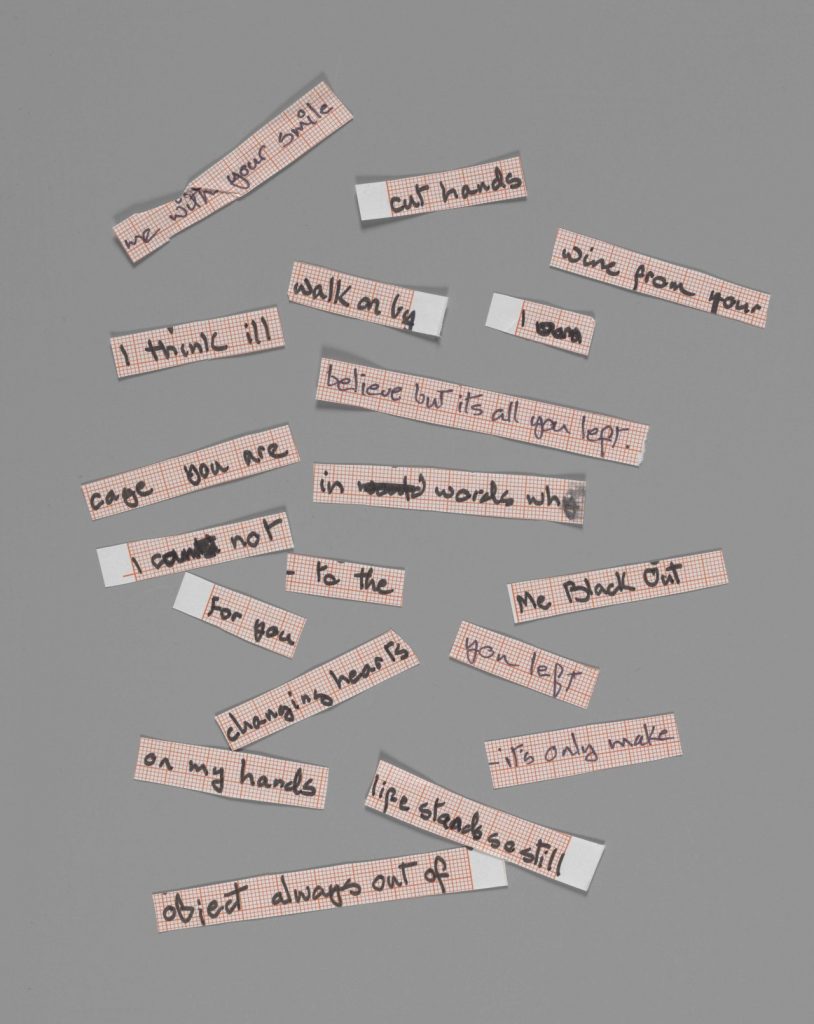 me with your smile
cut hands
wine from your
walk on by
I
I think ill
believe but its all you left.
cage you are
in words wh
I not
- to the
Me Black Out
For you
you left
changing hearts
-it's only make
on my hands
life stands so still
object always out of